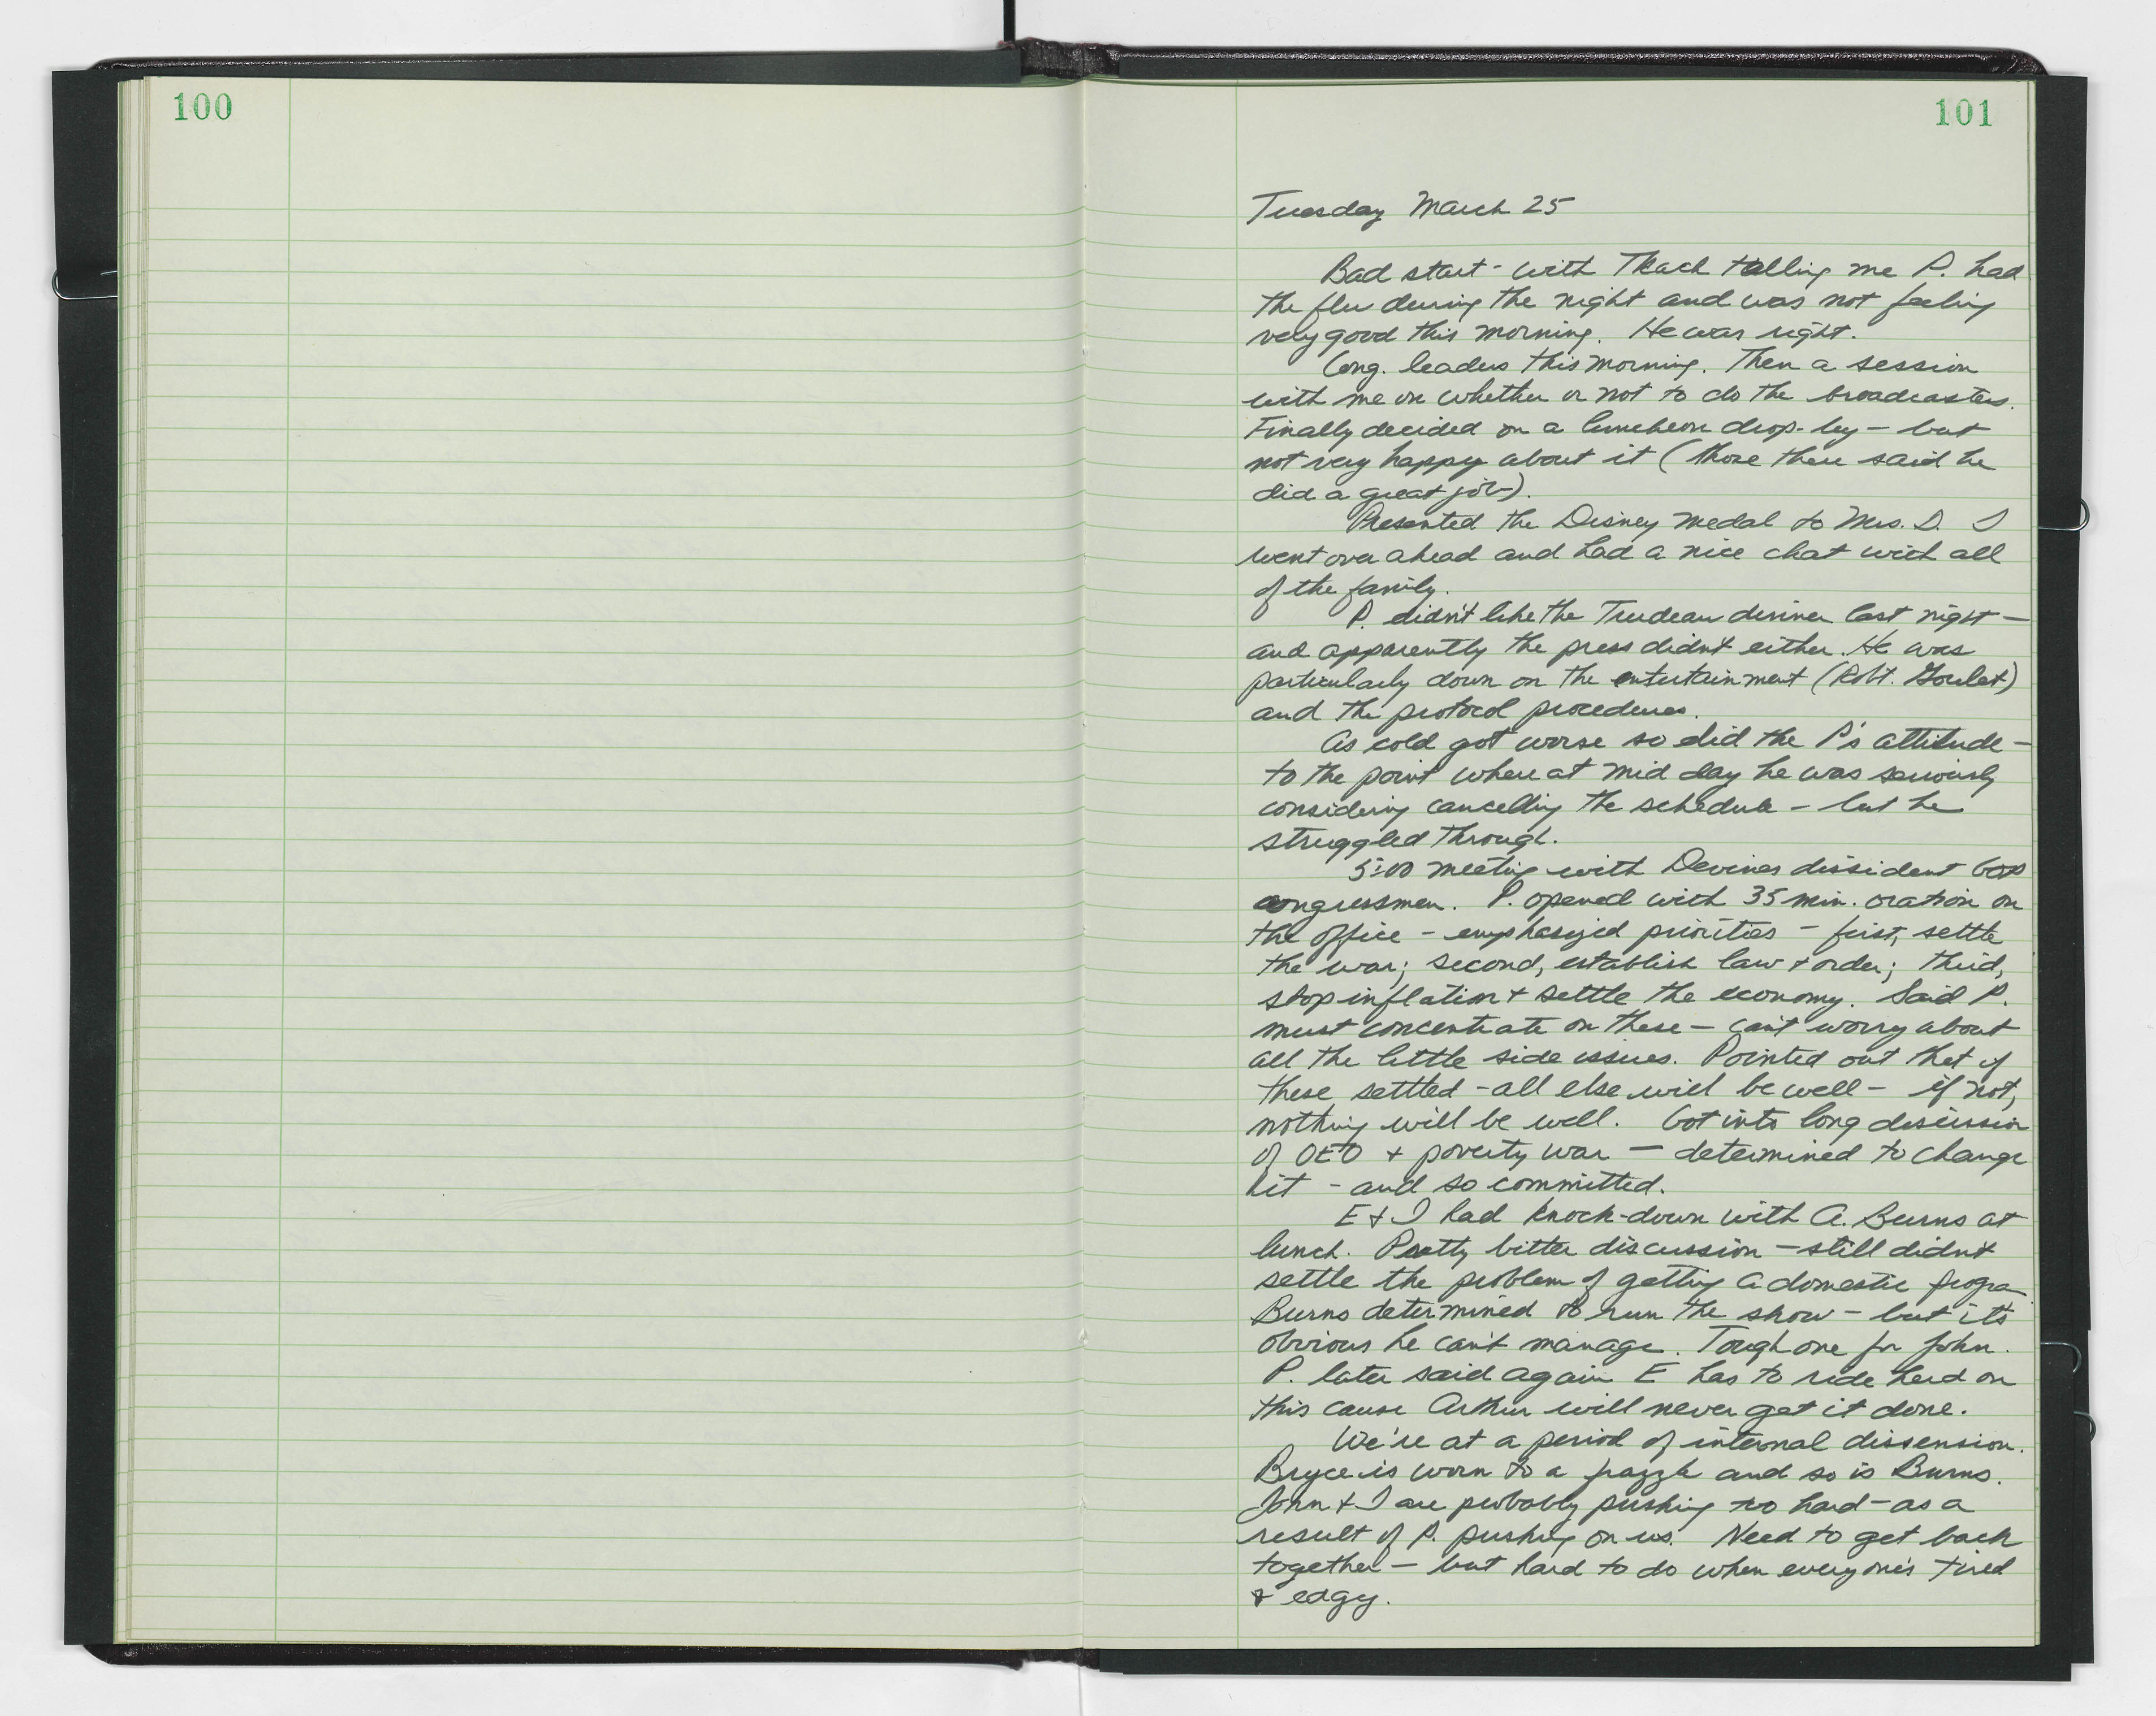 100
101
Tuesday March 25
Bad start - with Tkach telling me P. had
the flu during the night and was not feeling
very good this morning. He was right.
Cong. leaders this morning. Then a session
with me on whether or not to do the broadcasters.
Finally decided on a luncheon drop-by - but
not very happy about it (those there said he
did a great job).
Presented the Disney medal to Mrs. D. I
went over ahead and had a nice chat with all
of the family.
P. didn't like the Trudeau dinner last night -
and apparently the press didn't either. He was
particularly down on the entertainment (Robt. Goulet)
and the protocol procedures.
As cold got worse so did the P's attitude -
to the point where at mid day he was seriously
considering cancelling the schedule - but he
struggled through.
5:00 meeting with Devines dissident GOP
congressmen. P. opened with 35 min. oration on
the office - emphasized priorities - first, settle
the war; second, establish law + order; third,
stop inflation + settle the economy. Said P.
must concentrate on these - can't worry about
all the little side issues. Pointed out that if
these settled - all else will be well - if not,
nothing will be well. Got into long discussion
of OEO + poverty war - determined to change
it - and so committed.
E + I had knock-down with A. Burns at
lunch. Pretty bitter discussion - still didn't
settle the problem of getting a domestic progra
Burns determined to run the show - but it's
obvious he can't manage. Tough one for John.
P. later said again E has to ride herd on
this cause Arthur will never get it done.
We're at a period of internal dissension.
Bryce is worn to a frazzle and so is Burns.
John + I are probably pushing too hard - as a
result of P. pushing on us. Need to get back
together - but hard to do when everyone's tired
& edgy.